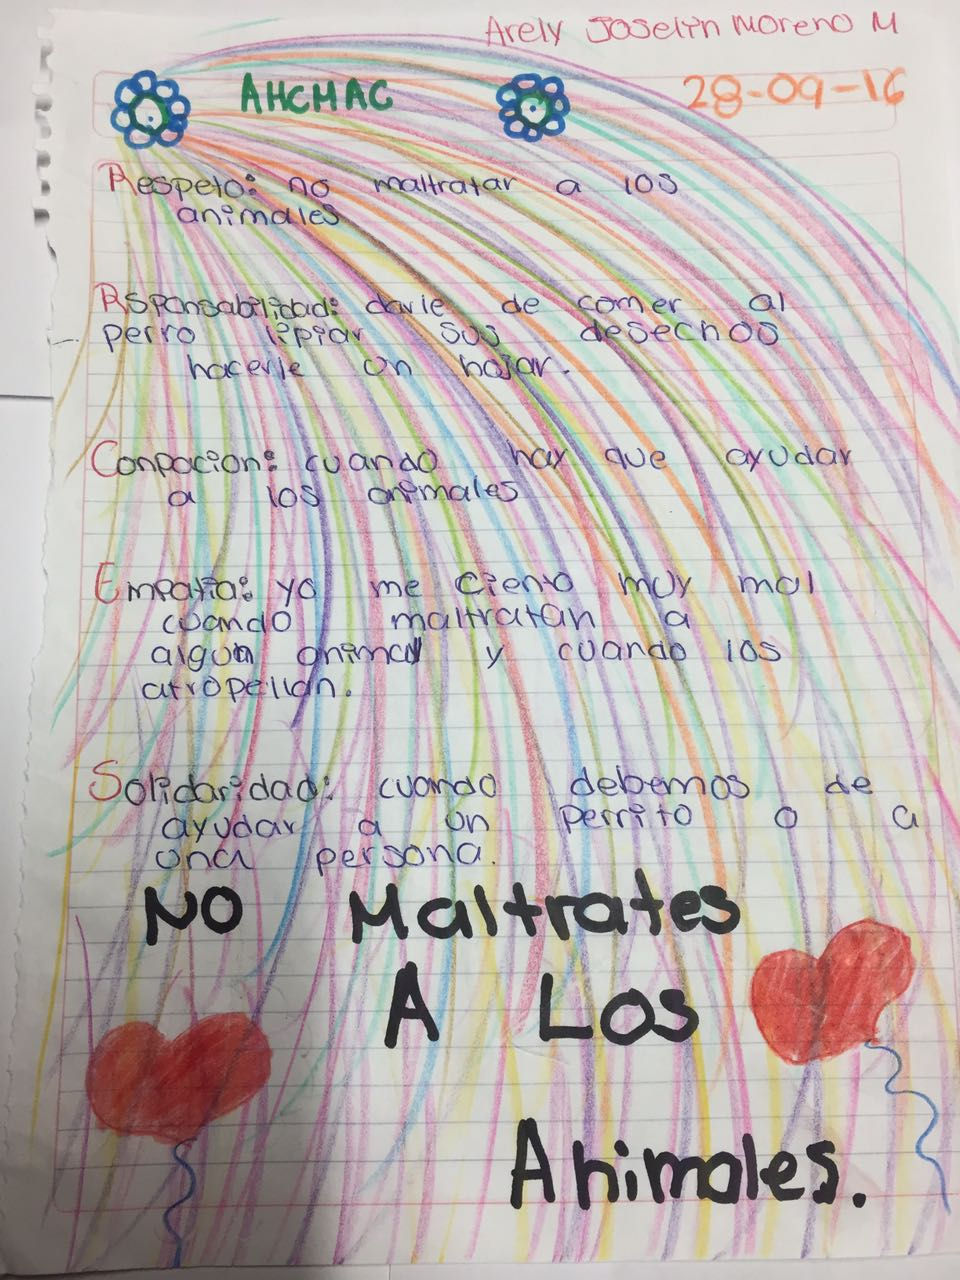 Arely Joselin Moreno M
AHCMAC
28-09-16
Respeto: no maltratar a los
animales
Rsponsabilidad: darle de comer al
perro lipiar sus desechos
hacerle un hojar.
Conpacion: cuando hay que ayudar
a los animales
Empatia: yo me ciento muy mal
cuando maltratan a
algun animal y cuando los
atropellan.
Solidaridad: cuando debemos de
ayudar a un perrito o a
una persona.
NO Maltrates
A Los
Animales.